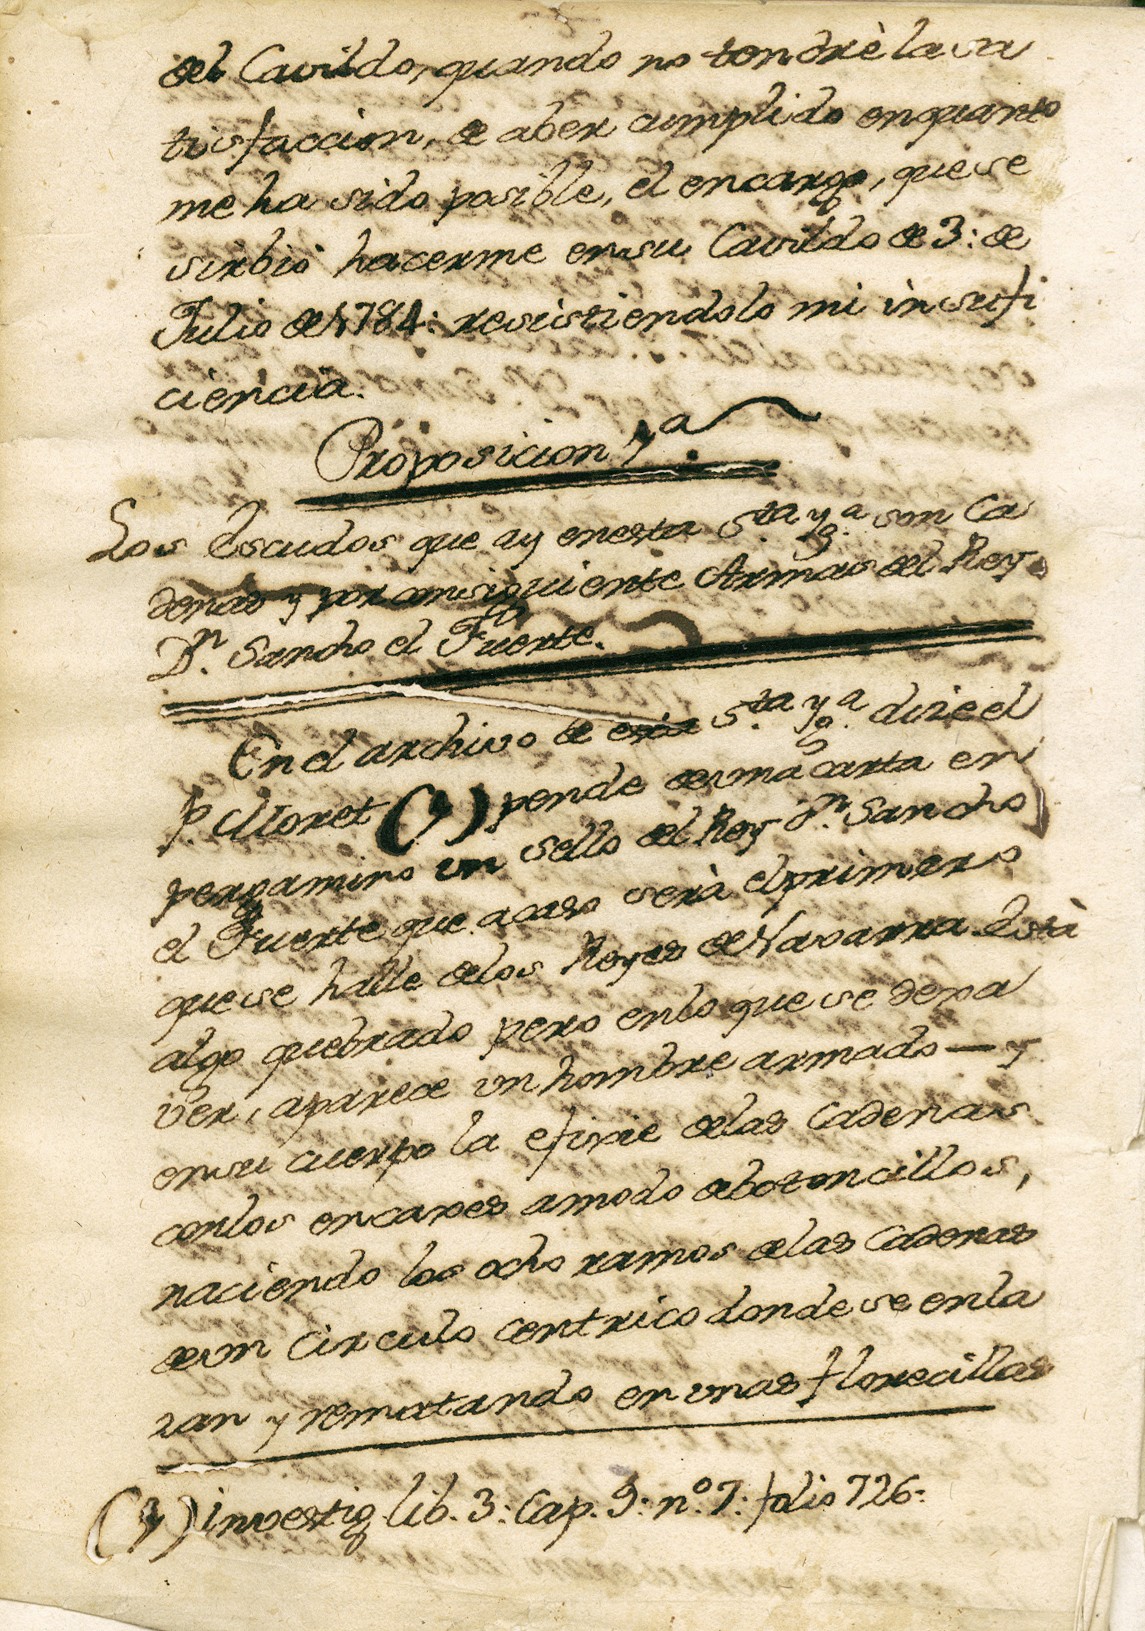 del Cavildo, quando no tendrè la sa
tisfaccion, de aber cumplido enquanto
me ha sido posible, el encargo, que se
sirbiò hacerme ensu Cavildo de 3: de
Julio de 1784: resistiendolo mi insufi
ciencia.
Proposicion 1ª.
Los Escudos que ay enesta S.ta Yg.ª son Ca
denas y por consiguiente Armas del Rey
D.n Sancho el Fuerte.
En el archivo de esta S.ta Yg.ª dice el
P. Moret (1) pende de una carta en
pergamino un sello del Rey D.n Sancho
el Fuerte que acaso serà el primero
que se halle delos Reyes de Navarra. Està
algo quebrado pero enlo que se dexa
ver, aparece un hombre armado — y
ensu cuerpo la efixie delas Cadenas
conlos encaxes amodo debotoncillos,
naciendo los ocho ramos delas Cadenas
deun circulo centrico donde se enla
zan y rematando en unas florecillas
(1) investig. lib. 3: Cap. 9: nº. 7: folio 726: